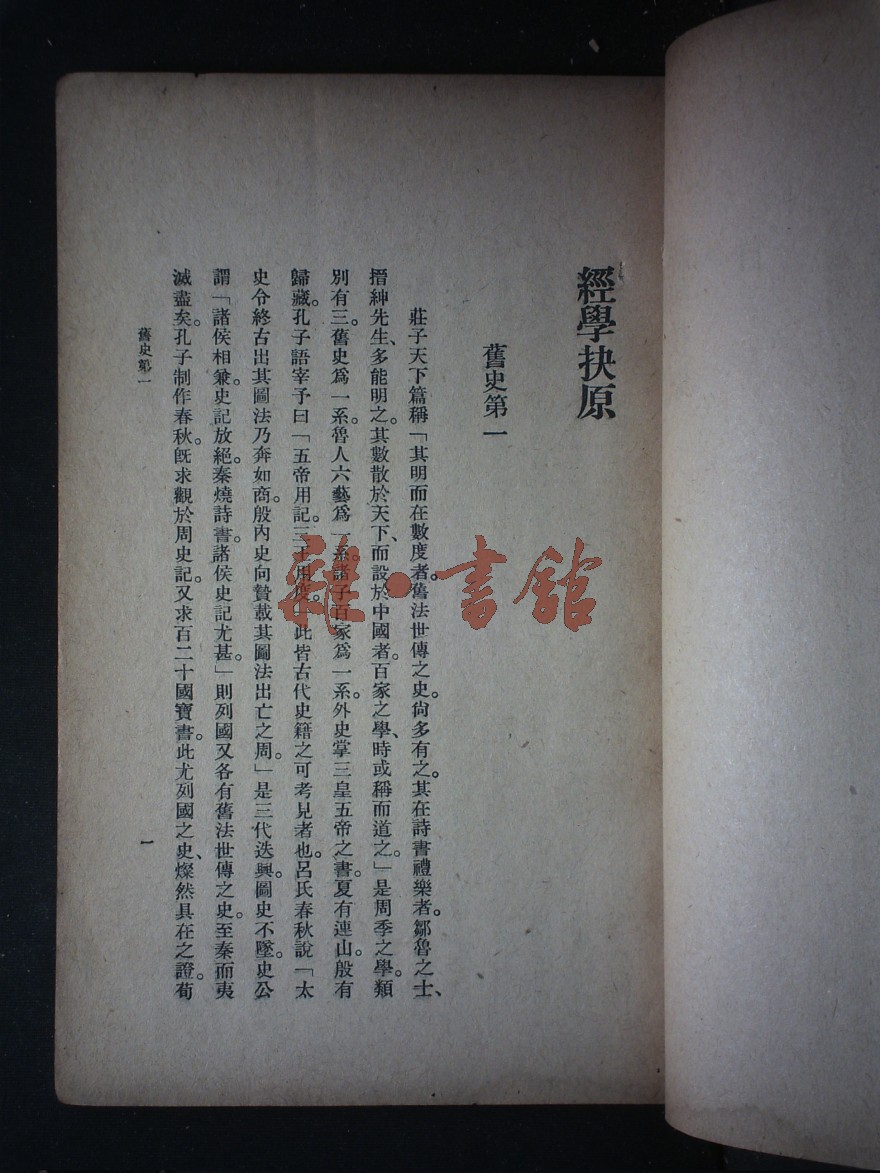 經學抉原
舊史第一
莊子天下篇稱「其明而在數度者。舊法世傳之史。尙多有之。其在詩書禮樂者。鄒魯之士、
搢紳先生、多能明之。其數散於天下、而設於中國者。百家之學、時或稱而道之。」是周季之學。類
別有三。舊史爲一系。魯人六藝爲一系。諸子百家爲一系。外史掌三皇五帝之書。夏有連山。殷有
歸藏。孔子語宰予曰「五帝用記。三王用度。」此皆古代史籍之可考見者也。呂氏春秋說「太
史令終古出其圖法乃奔如商。殷內史向摯載其圖法出亡之周。」是三代迭興。圖史不墜。史公
謂「諸侯相兼。史記放絕。秦燒詩書。諸侯史記尤甚。」則列國又各有舊法世傳之史。至秦而夷
滅盡矣。孔子制作春秋。旣求觀於周史記。又求百二十國寶書。此尤列國之史、燦然具在之證。荀
舊史第一
一
雜·書館